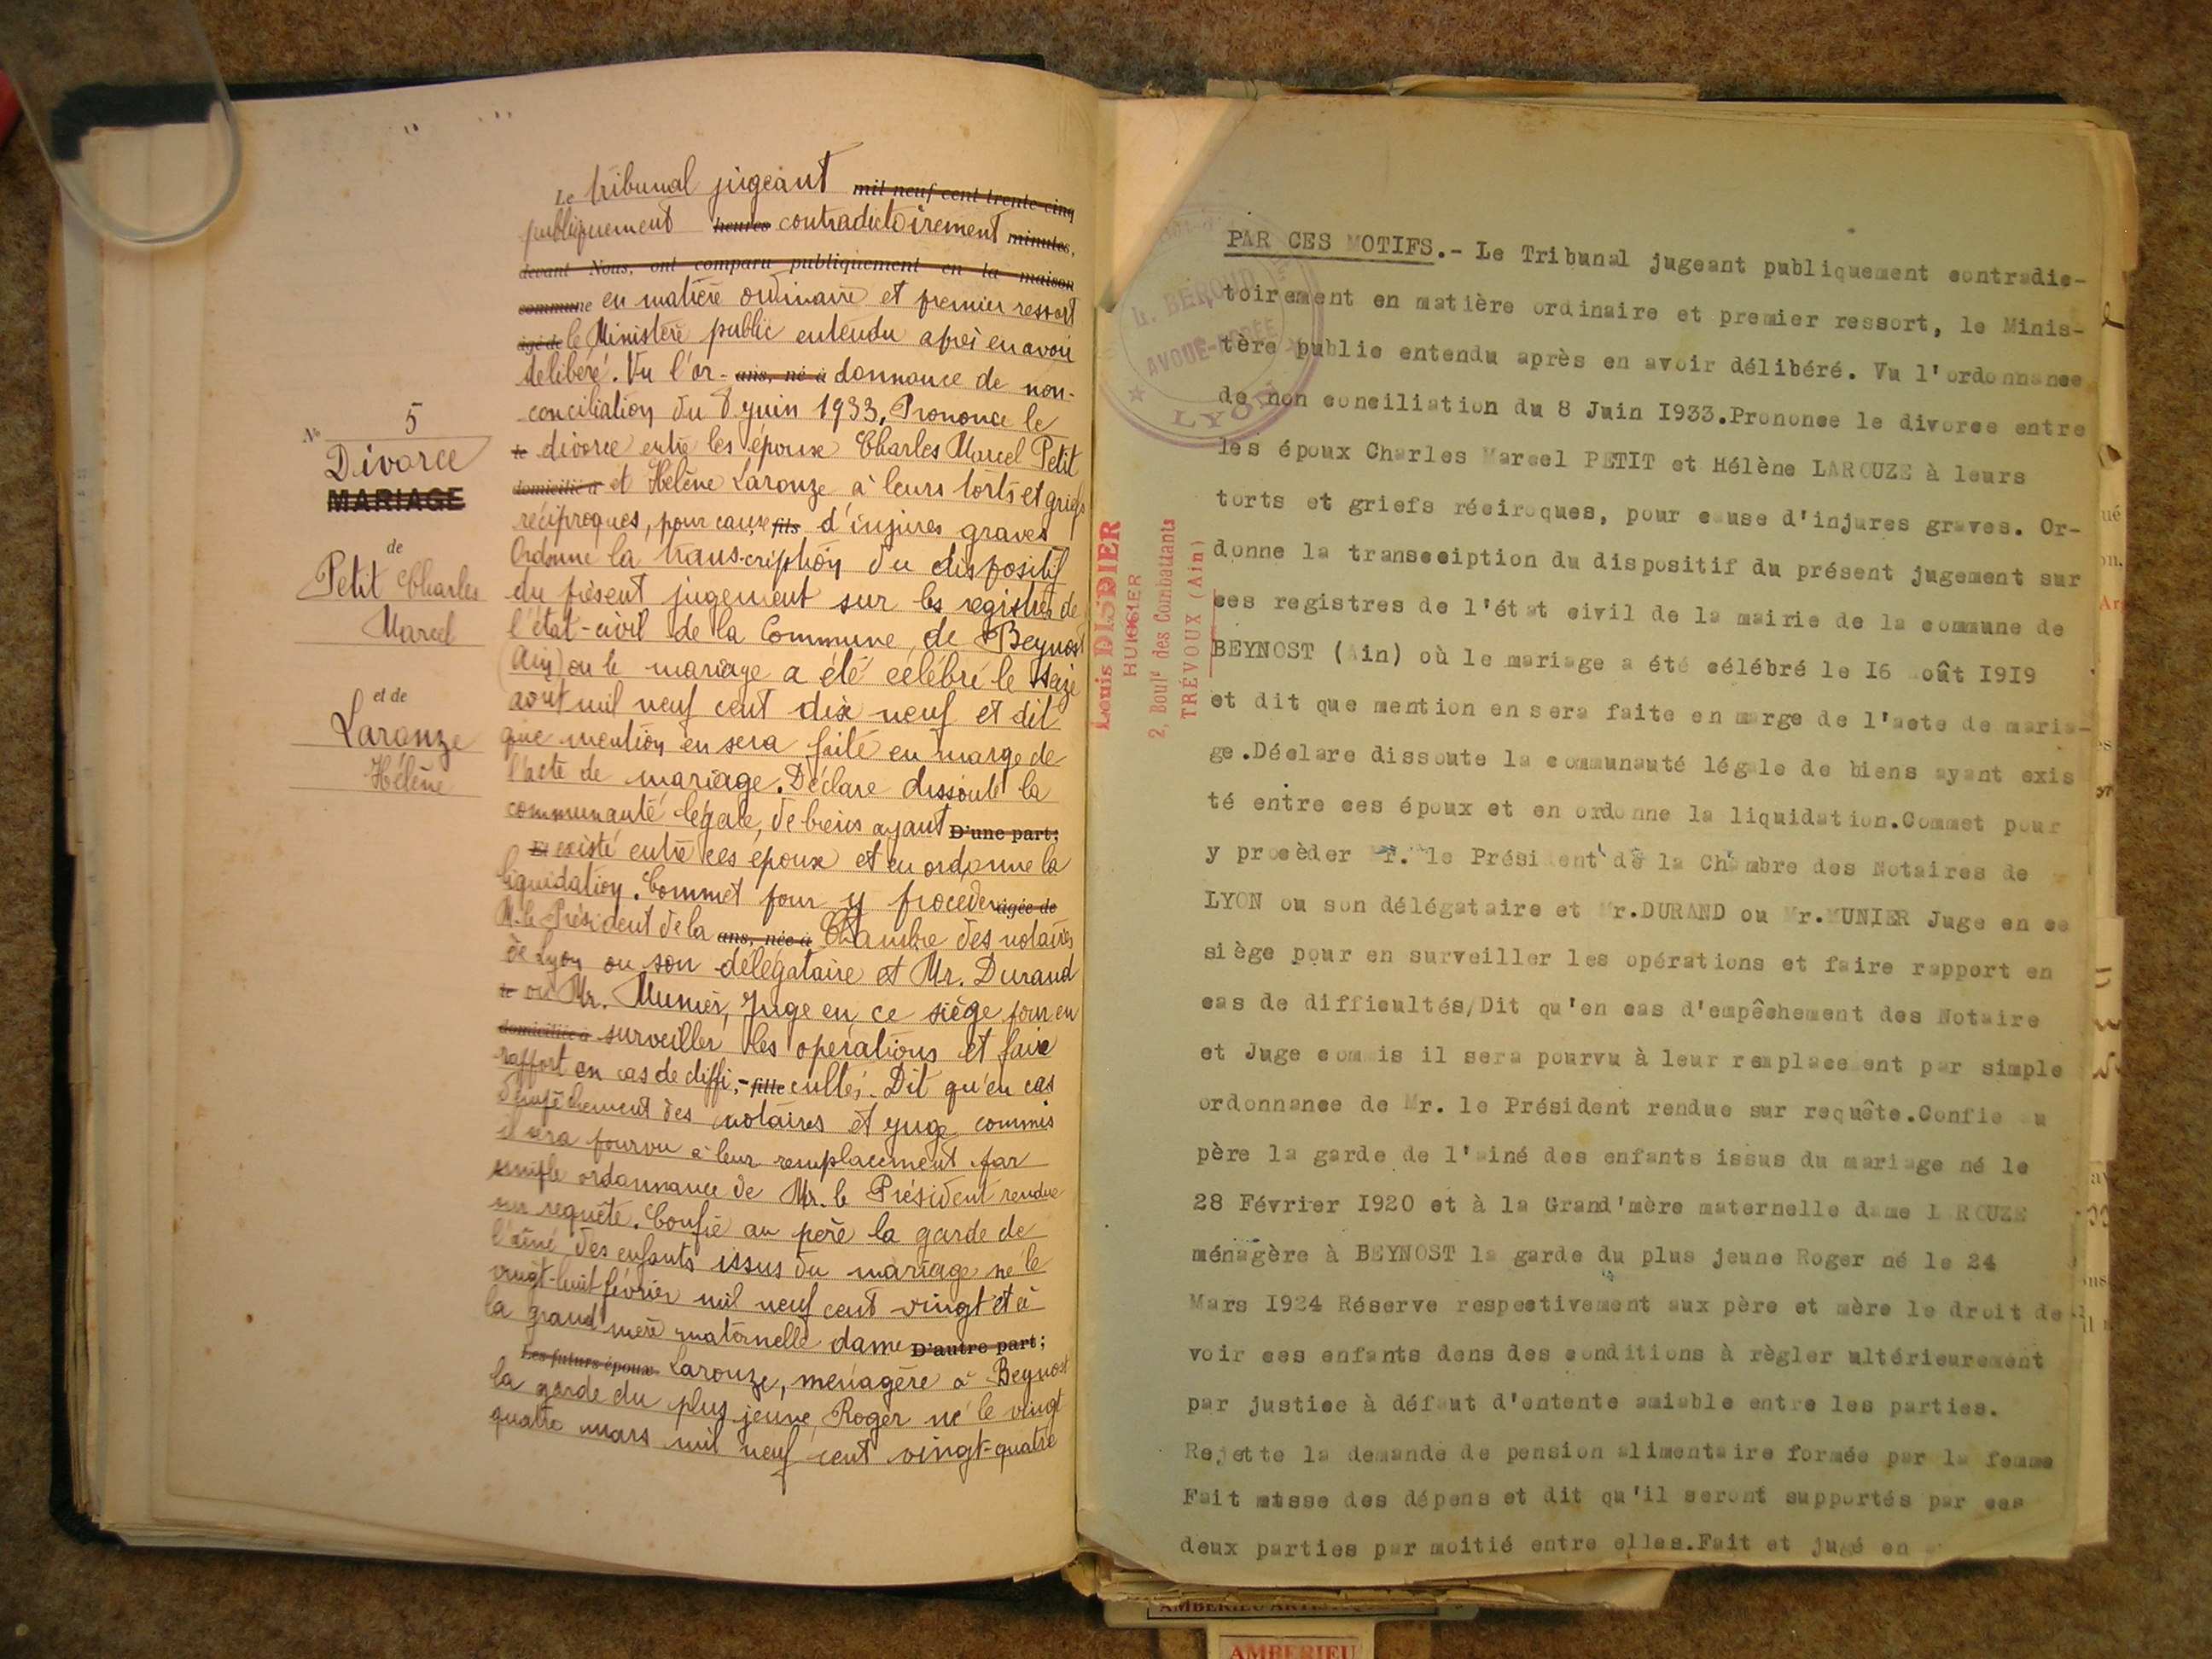 N° 5
Divorce
MARIAGE
de
Petit Charles
Marcel
et de
Larouze
Hélène
Le tribunal jugeant mil neuf cent trente-cinq
publiquement heures contradictoirement minutes,
devant Nous, ont comparu publiquement en la maison
commune en matière ordinaire et premier ressort
âgé de le Ministère public entendu après en avoir
délibéré. Vu l'or- ans, né à donnance de non-
conciliation du 8 juin 1933, Prononce le
le divorce entre les époux Charles Marcel Petit
domicilié à et Hélène Larouze à leurs torts et griefs
réciproques, pour cause fils d'injures graves
Ordonne la trans-cription du dispositif
du présent jugement sur les registres de
l'état-civil de la Commune de Beynost
(Ain) ou le mariage a été célébré le seize
août mil neuf cent dix neuf et dit
que mention en sera faite en marge de
l'acte de mariage. Déclare dissoute la
communauté légale, de biens ayant D'une part;
Et existé entre ces époux et en ordonne la
liquidation. Commet pour y procéder âgée de
M. le Président de la ans, née à Chambre des notaires
de Lyon ou son délégataire et Mr. Durand
le ou Mr. Munier, Juge en ce siège pour en
domiciliée à surveiller les opérations et faire
rapport en cas de diffi,- fille cultés. Dit qu'en cas
d'empêchement des notaires et juge commis
il sera pourvu à leur remplacement par
simple ordonnance de Mr. le Président rendue
sur requête. Confie au père la garde de
l'aîné des enfants issus du mariage né le
vingt-huit février mil neuf cent vingt et à
la grand'mère maternelle dame D'autre part;
Les futurs époux Larouze, ménagère à Beynost
la garde du plus jeune, Roger né le vingt
quatre mars mil neuf cent vingt-quatre
L. BEROUD
AVOUÉ
LYON
Louis DISDIER
HUISSIER
2, Boul^d des Combattants
TRÉVOUX (Ain)
PAR CES MOTIFS.- Le Tribunal jugeant publiquement contradic-
toirement en matière ordinaire et premier ressort, le Minis-
tère public entendu après en avoir délibéré. Vu l'ordonnance
de non conciliation du 8 Juin I933.Prononce le divorce entre
les époux Charles Marcel PETIT et Hélène LAROUZE à leurs
torts et griefs réciroques, pour cause d'injures graves. Or-
donne la transcciption du dispositif du présent jugement sur
ces registres de l'état civil de la mairie de la commune de
BEYNOST (Ain) où le mariage a été célébré le I6 Août I9I9
et dit que mention en sera faite en marge de l'acte de maria-
ge.Déclare dissoute la communauté légale de biens ayant exis
té entre ces époux et en ordonne la liquidation.Commet pour
y procèder Mr. le Président de la Chambre des Notaires de
LYON ou son délégataire et Mr.DURAND ou Mr.MUNIER Juge en ce
siège pour en surveiller les opérations et faire rapport en
cas de difficultés/Dit qu'en cas d'empêchement des Notaire
et Juge commis il sera pourvu à leur remplacement par simple
ordonnance de Mr. le Président rendue sur requête.Confie au
père la garde de l'ainé des enfants issus du mariage né le
28 Février I920 et à la Grand'mère maternelle dame LAROUZE
ménagère à BEYNOST la garde du plus jeune Roger né le 24
Mars I924 Réserve respectivement aux père et mère le droit de
voir ces enfants dens des conditions à règler ultérieurement
par justice à défaut d'entente amiable entre les parties.
Rejette la demande de pension alimentaire formée par la femme
Fait masse des dépens et dit qu'il seront supportés par ces
deux parties par moitié entre elles.Fait et jugé en
AMBERIEU
AMBERIEU